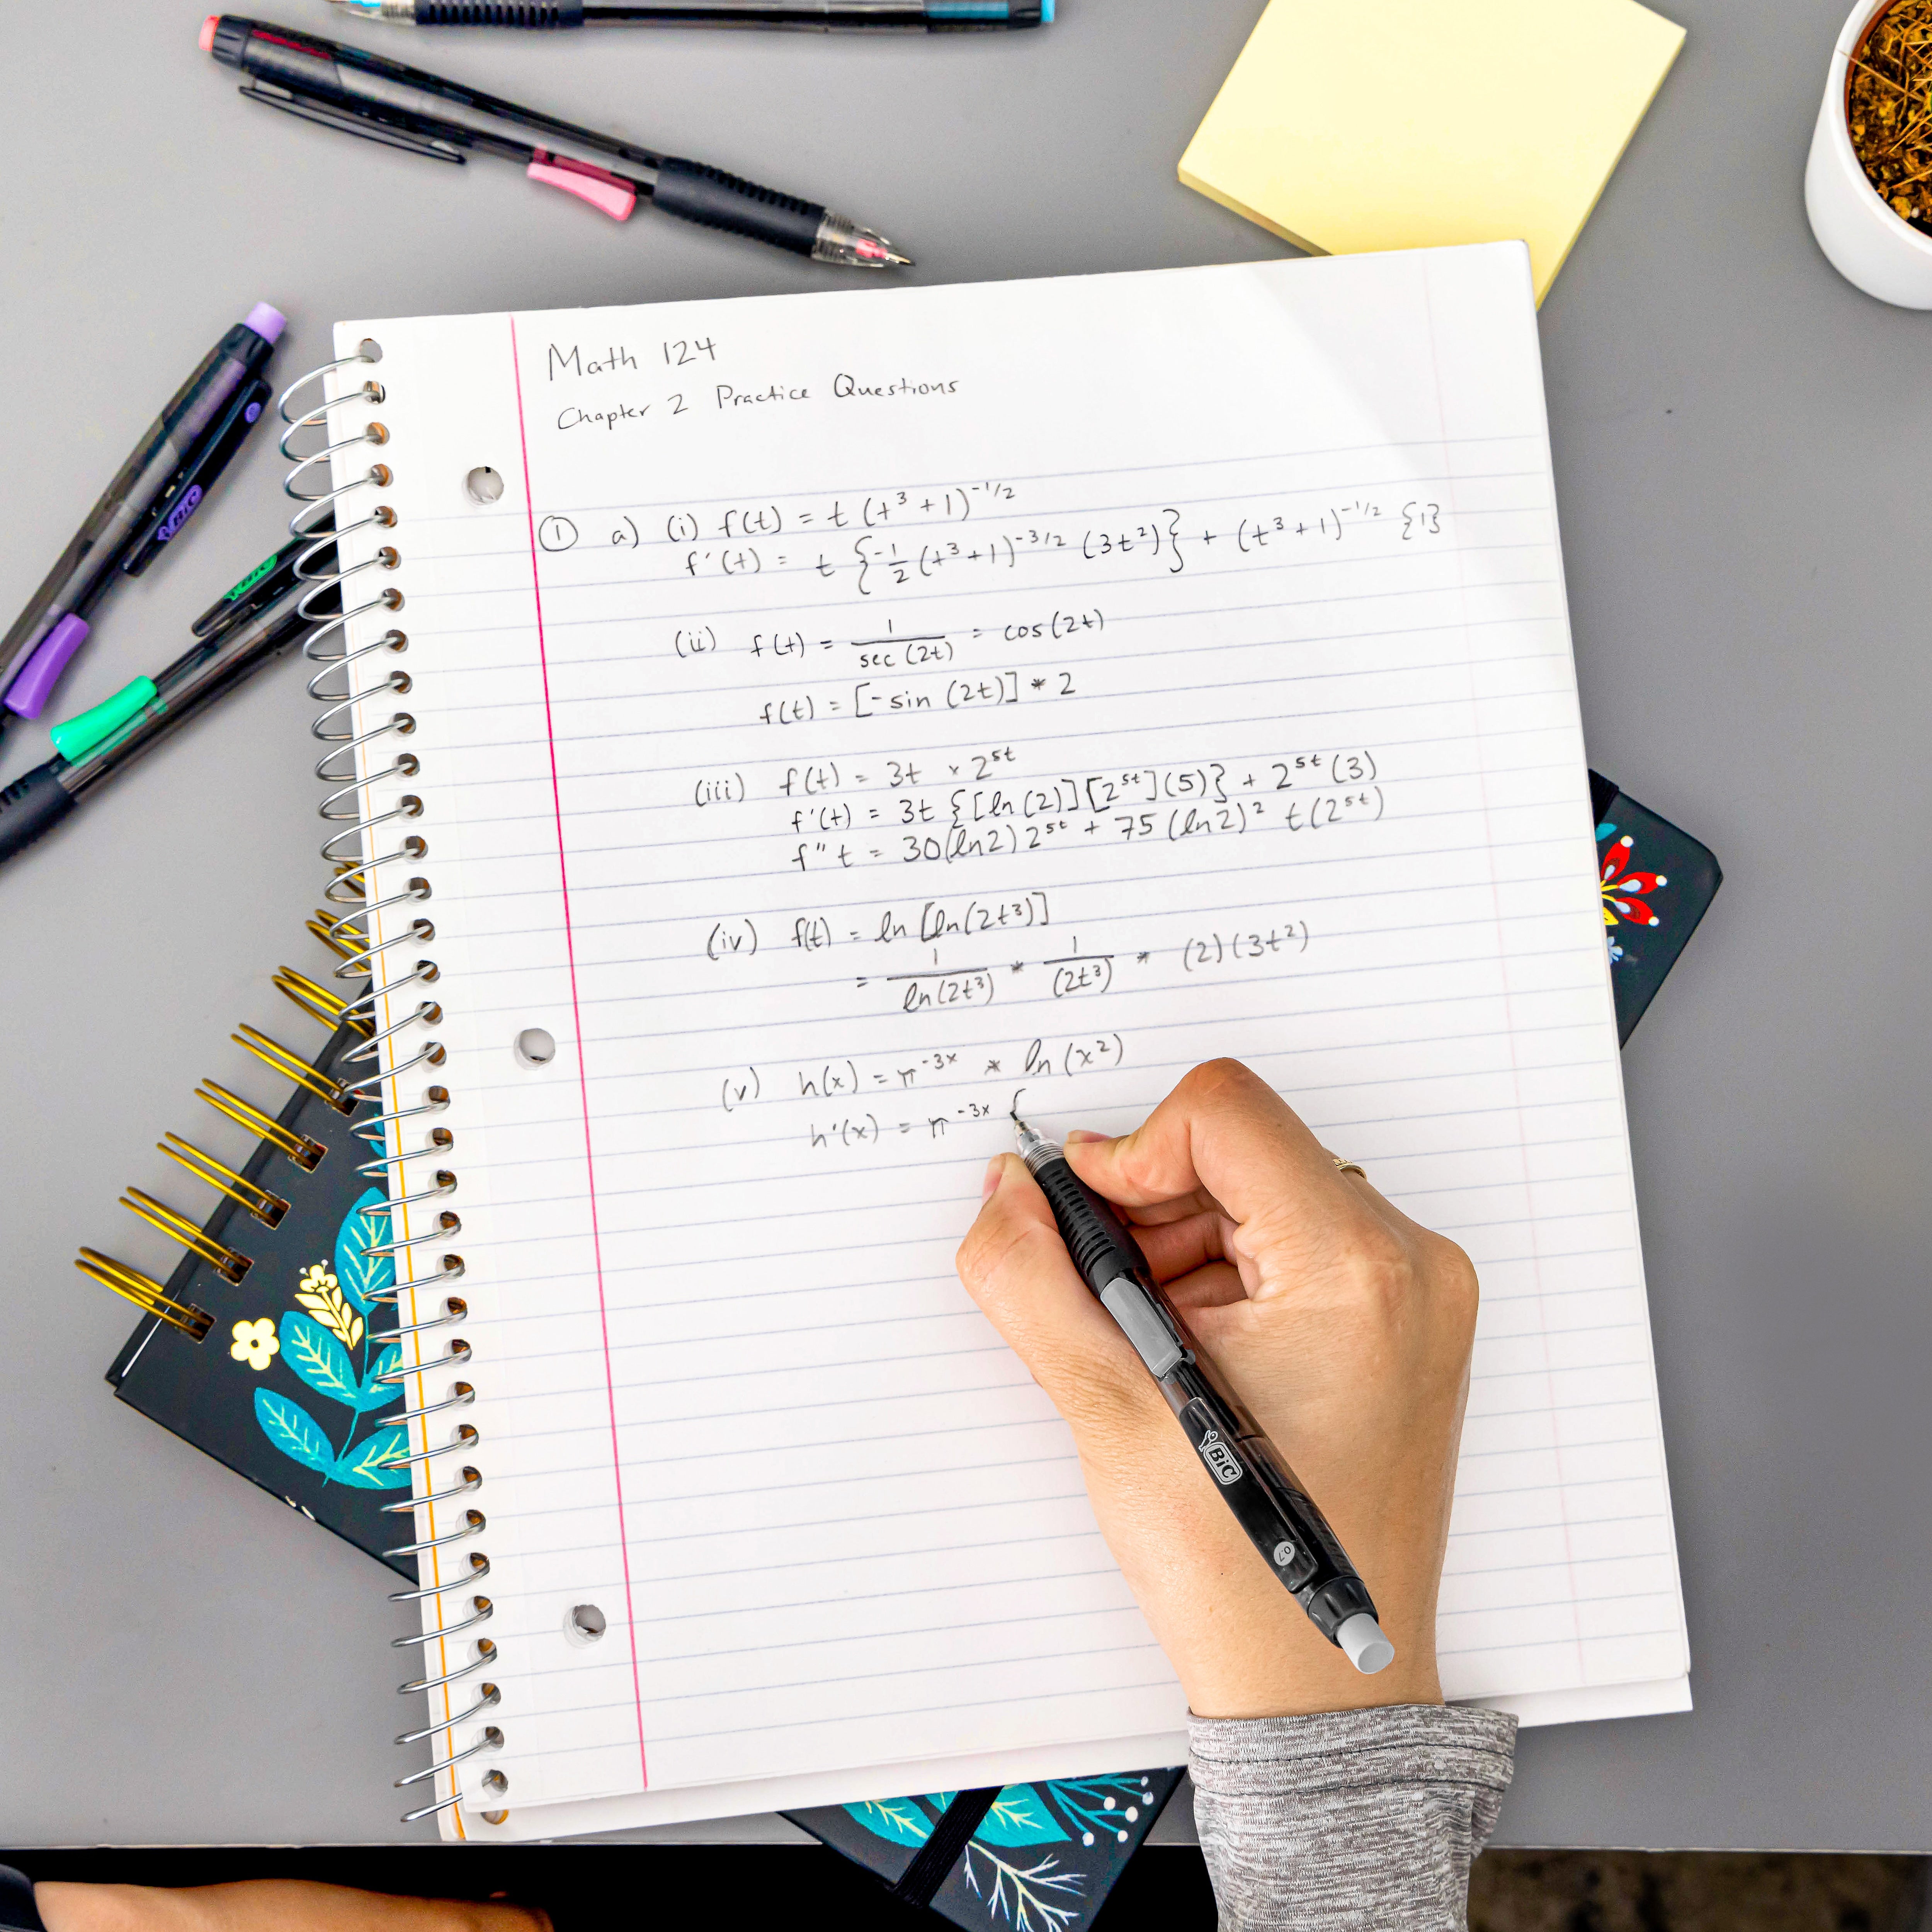 Math 124
Chapter 2 Practice Questions
① a) (i) f(t) = t (t³ + 1)^-1/2
f'(t) = t {-1/2 (t³+1)^-3/2 (3t²)} + (t³+1)^-1/2 {1}
(ii) f(t) = 1/sec (2t) = cos(2t)
f(t) = [-sin (2t)] * 2
(iii) f(t) = 3t × 2^5t
f'(t) = 3t {[ln(2)][2^5t](5)} + 2^5t (3)
f" t = 30(ln2) 2^5t + 75 (ln2)² t(2^5t)
(iv) f(t) = ln [ln(2t³)]
= 1/ln(2t³) * 1/(2t³) * (2)(3t²)
(v) h(x) = π^-3x * ln(x²)
h'(x) = π^-3x {
BIC
0.7
BIC
BIC